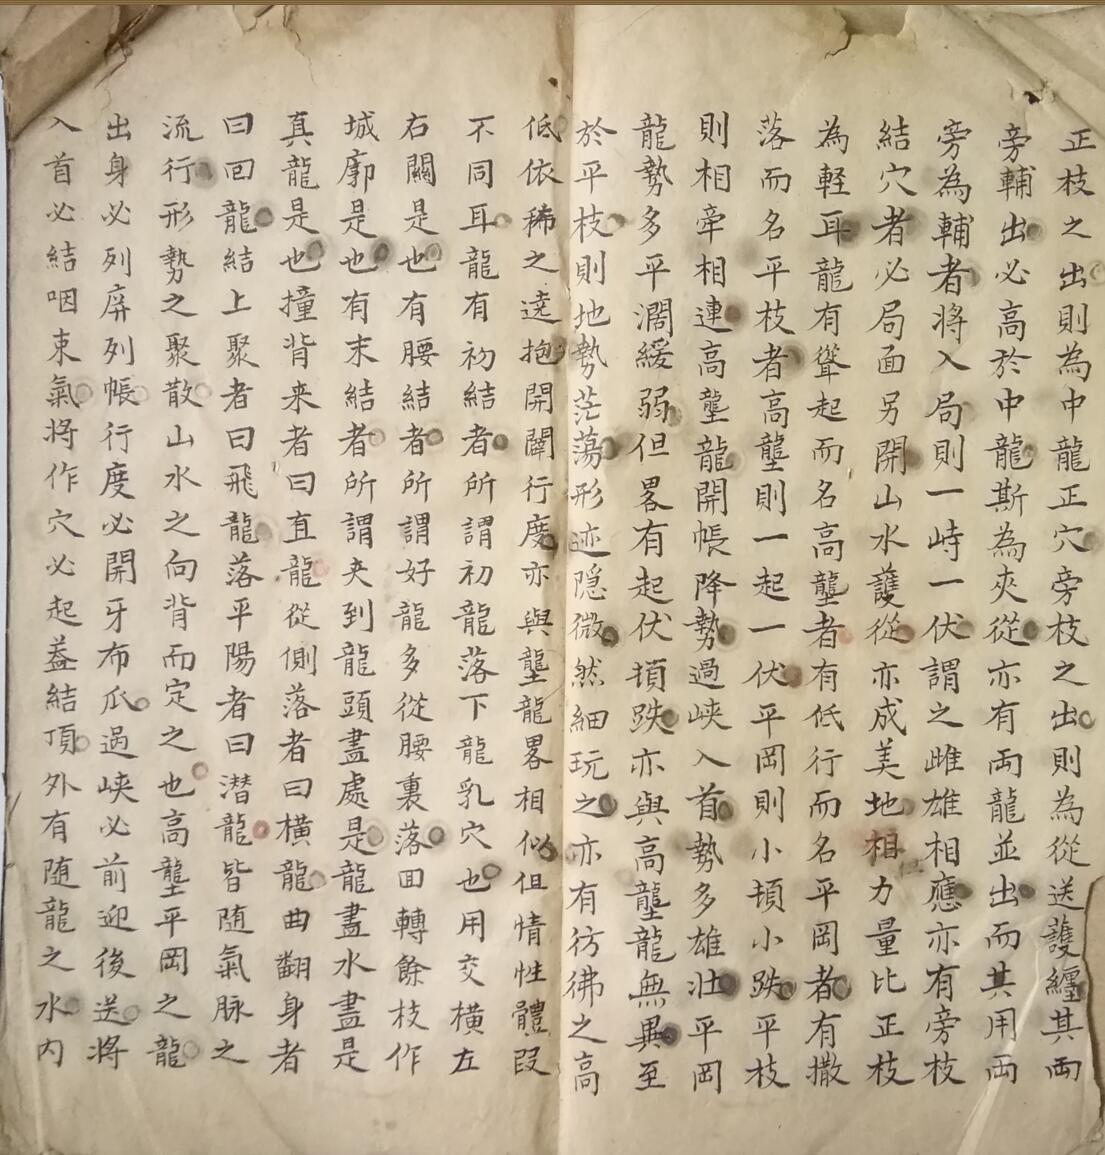 正枝之出則為中龍正穴旁枝之出則為從送護纏其両
旁輔出必高於中龍斯為夾從亦有両龍並出而其用両
旁為輔者将入局則一峙一伏謂之雌雄相應亦有旁枝
結穴者必局面另開山水護從亦成美地相力量比正枝
為軽耳龍有聳起而名高壟者有低行而名平岡者有撒
落而名平枝者高壟則一起一伏平岡則小頓小跌平枝
則相牵相連高壟龍開帳降勢過峡入首勢多雄壮平岡
龍勢多平濶緩弱但畧有起伏頓跌亦與高壟龍無異至
於平枝則地勢茫蕩形迹隠微然細玩之亦有彷彿之高
低依稀之遶抱開闢行度亦與壟龍畧相似但情性體段
不同耳龍有初結者所謂初龍落下龍乳穴也用交横左
右關是也有腰結者所謂好龍多從腰裏落回轉餘枝作
城廓是也有末結者所謂夬到龍頭盡處是龍盡水盡是
真龍是也撞背来者曰直龍從側落者曰横龍曲翻身者
曰回龍結上聚者曰飛龍落平陽者曰潜龍皆随氣脉之
流行形勢之聚散山水之向背而定之也高壟平岡之龍
出身必列屏列帳行度必開牙布爪過峡必前迎後送将
入首必結咽束氣将作穴必起葢結頂外有随龍之水内